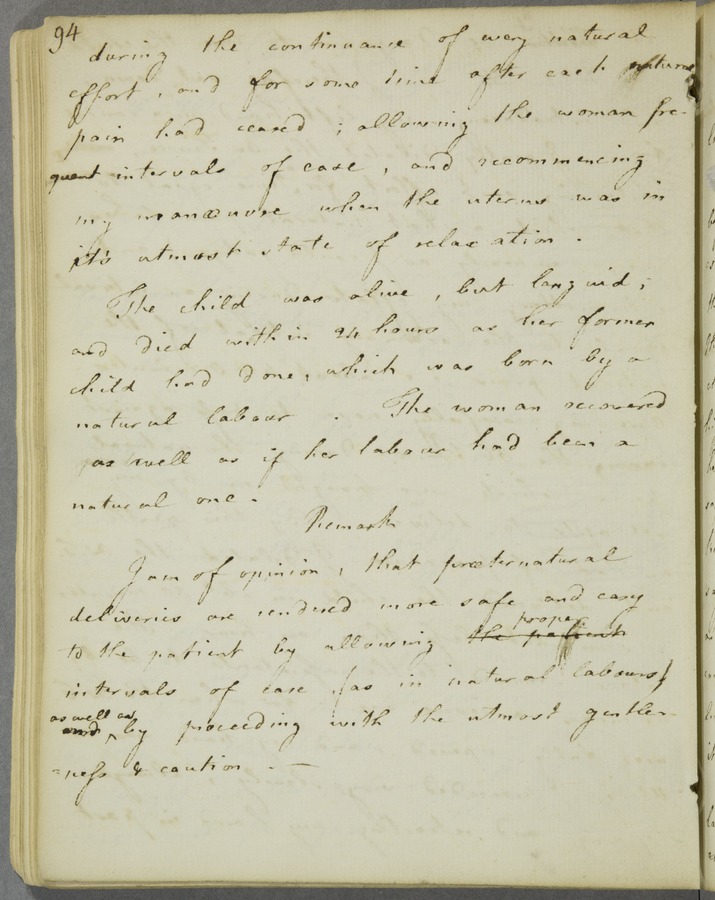 94
during the continuance of every natural
effort, and for some time after each
pain had ceased; allowing the woman fre-
quent intervals of ease, and recommencing
my manœuvre when the uterus was in
it's utmost state of relaxation.
The child was alive, but languid;
and died within 24 hours as her former
child had done, which was born by a
natural labour. The woman recovered
as well as if her labour had been a
natural one.
Remark
I am of opinion, that præternatural
deliveries are rendered more safe and easy
proper
to the patient by allowing the patient
intervals of ease (as in natural labours)
as well as
and by proceeding with the utmost gentle-
=ness & caution. —